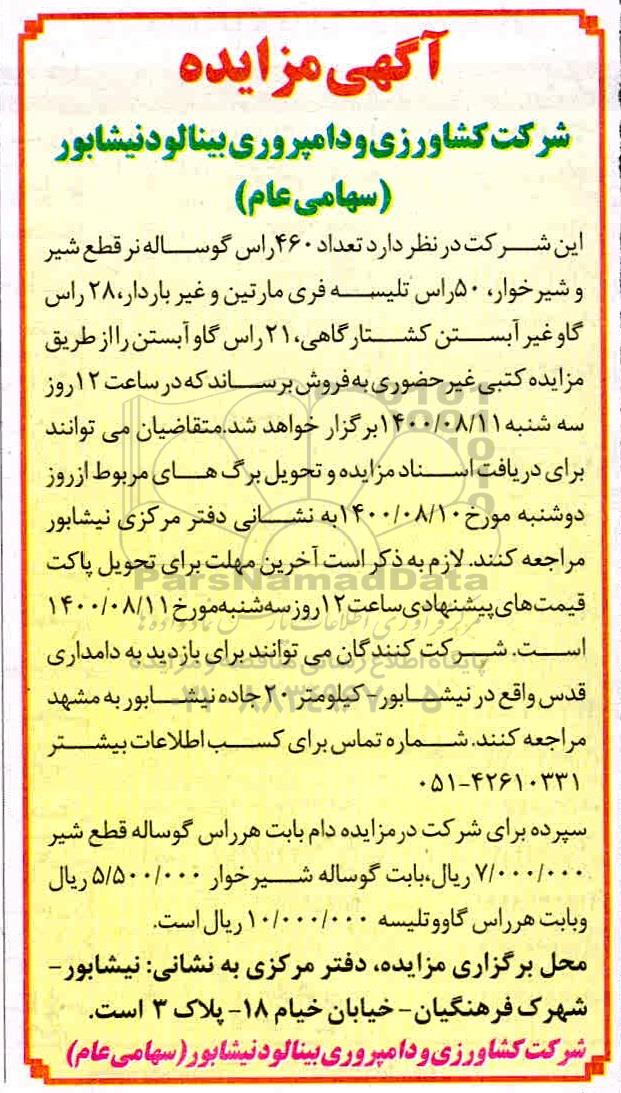 آگهی مزایده
شرکت کشاورزی و دامپروری بینالود نیشابور
(سهامی عام)
این شرکت در نظر دارد تعداد ۴۶۰راس گوساله نر قطع شیر
و شیرخوار، ۵۰راس تلیسه فری مارتین و غیر باردار،۲۸ راس
گاو غیر آبستن کشتارگاهی،۲۱راس گاو آبستن را از طریق
مزایده کتبی غیر حضوری به فروش برساند که در ساعت ۱۲روز
سه شنبه ۱۴۰۰/۰۸/۱۱برگزار خواهد شد.متقاضیان می توانند
برای دریافت اسناد مزایده و تحویل برگ های مربوط از روز
دوشنبه مورخ ۱۴۰۰/۰۸/۱۰به نشانی دفتر مرکزی نیشابور
مراجعه کنند. لازم به ذکر است آخرین مهلت برای تحویل پاکت
ParsNamadData
قیمت‌های پیشنهادی ساعت ۱۲روز سه شنبه مورخ ۱۴۰۰/۰۸/۱۱
است. شرکت کنندگان می توانند برای بازدید به دامداری
پایگاه اطلاع رسانی مناقصه و مزایده
قدس واقع در نیشابور- کیلومتر ۲۰ جاده نیشابور به مشهد
مراجعه کنند. شماره تماس برای کسب اطلاعات بیشتر
۰۵۱-۴۲۶۱۰۳۳۱
سپرده برای شرکت در مزایده دام بابت هر راس گوساله قطع شیر
۷/۰۰۰/۰۰۰ ریال،بابت گوساله شیرخوار ۵/۵۰۰/۰۰۰ ریال
و بابت هر راس گاو و تلیسه ۱۰/۰۰۰/۰۰۰ ریال است.
محل برگزاری مزایده، دفتر مرکزی به نشانی: نیشابور-
شهرک فرهنگیان- خیابان خیام ۱۸- پلاک ۳ است.
شرکت کشاورزی و دامپروری بینالود نیشابور (سهامی عام)